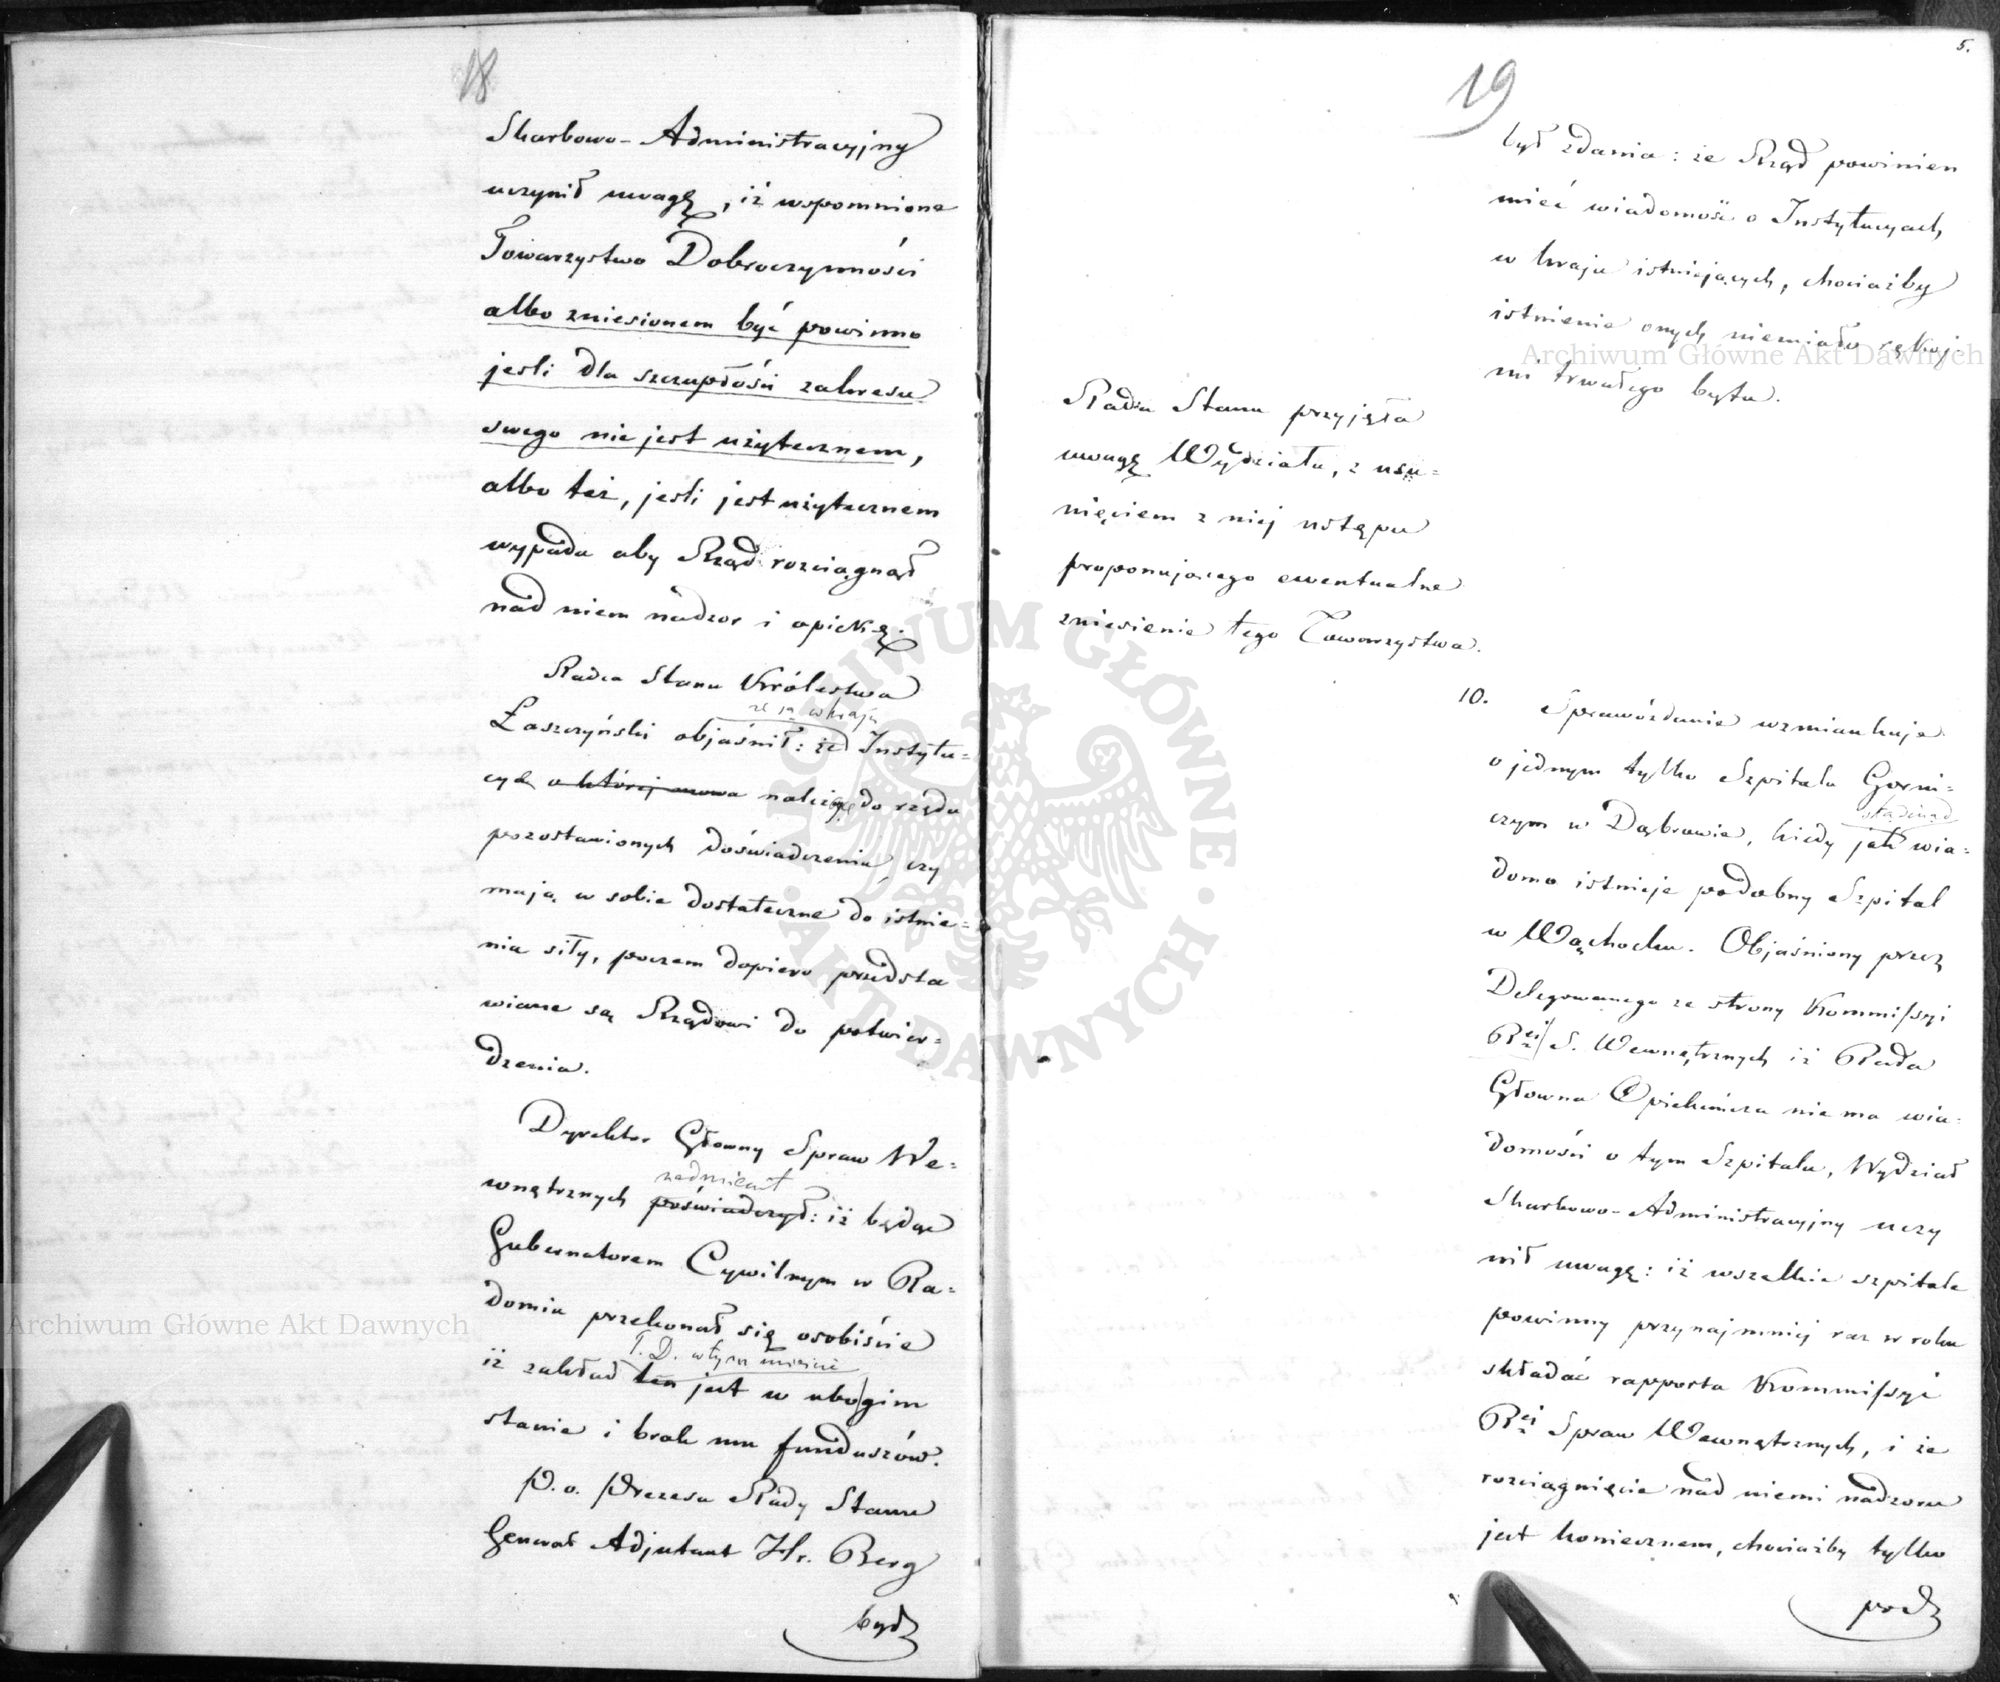 18
Skarbowo-Administracyjny
uczynił uwagę, iż wspomnione
Towarzystwo Dobroczynności
albo zniesionem być powinno
jeśli dla szczupłości zakresu
swego nie jest użytecznem,
albo też, jeśli jest użytecznem
wypada aby Rząd rozciągnął
nad niem nadzór i opiekę.
Radca Stanu Królestwa
że są w kraju
Łaszczyński objaśnił: że Instytu=
cye o której mowa należą do rzędu
pozostawionych doświadczeniu, czy
mają w sobie dostateczne do istnie=
nia siły, poczem dopiero przedsta
wiane są Rządowi do potwier=
dzenia.
Dyrektor Główny Spraw We=
wnętrznych poświadczył: iż będąc
nadmienił
Gubernatorem Cywilnym w Ra=
domiu przekonał się osobiście
T. D. w tym mieście
iż zakład ten jest w ubogim
stanie i brak mu funduszów.
P. o. Prezesa Rady Stanu
Generał Adjutant Hr. Berg
był
5.
19
był zdania: że Rząd powinien
mieć wiadomość o Instytucyach
w kraju istniejących, chociażby
istnienie onych niemiało rękoj-
mi trwałego bytu.
Rada Stanu przyjęła
uwagę Wydziału, z usu=
nięciem z niej ustępu
proponującego ewentualne
zniesienie tego Towarzystwa.
10. Sprawozdanie wzmiankuje
o jednym tylko Szpitalu Górni=
czym w Dąbrowie, kiedy jak wia=
domo istnieje podobny Szpital
w Wąchocku. Objaśniony przez
Delegowanego ze strony Kommissyi
Rei S. Wewnętrznych iż Rada
Główna Opiekuńcza nie ma wia=
domości o tym Szpitalu, Wydział
Skarbowo-Administracyjny uczy
nił uwagę: iż wszelkie szpitale
powinny przynajmniej raz w roku
składać rapporta Kommissyi
Rei Spraw Wewnętrznych, i że
rozciągnięcie nad niemi nadzoru
jest koniecznem, chociażby tylko
pod
Archiwum Główne Akt Dawnych
Archiwum Główne Akt Dawnych
ARCHIWUM GŁÓWNE AKT DAWNYCH